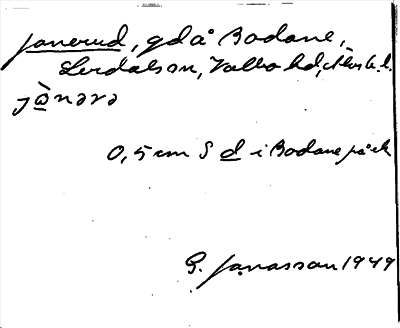 Janerud, gd å Bodane,
Lerdals sn, Valbo hd, Älvsb. l.
jànərə
0,5 cm S d i Bodane på ek
G. Janasson 1949